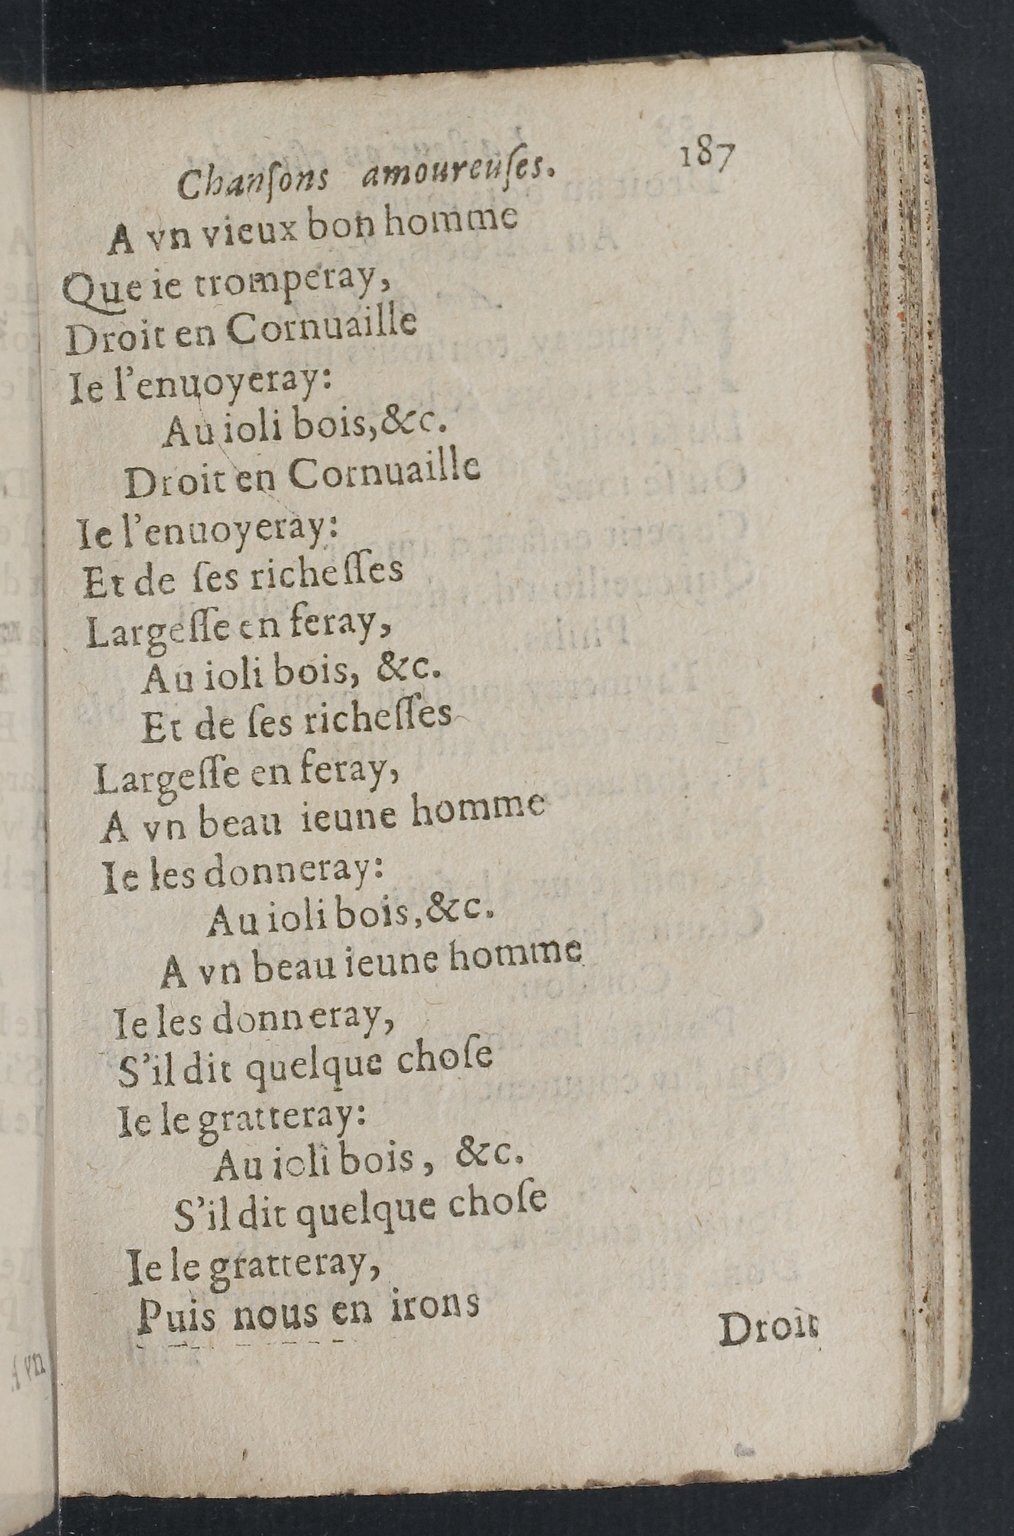 Chanſons amoureuſes. 187
A vn vieux bon homme
Que ie tromperay,
Droit en Cornuaille
Ie l'enuoyeray:
Au ioli bois,&c.
Droit en Cornuaille
Ie l'enuoyeray:
Et de ſes richeſſes
Largeſſe en feray,
Au ioli bois, &c.
Et de ſes richeſſes
Largeſſe en feray,
A vn beau ieune homme
Ie les donneray:
Au ioli bois,&c.
A vn beau ieune homme
Ie les donneray,
S'il dit quelque choſe
Ie le gratteray:
Au ioli bois, &c.
S'il dit quelque choſe
Ie le gratteray,
Puis nous en irons
Droit
A vn